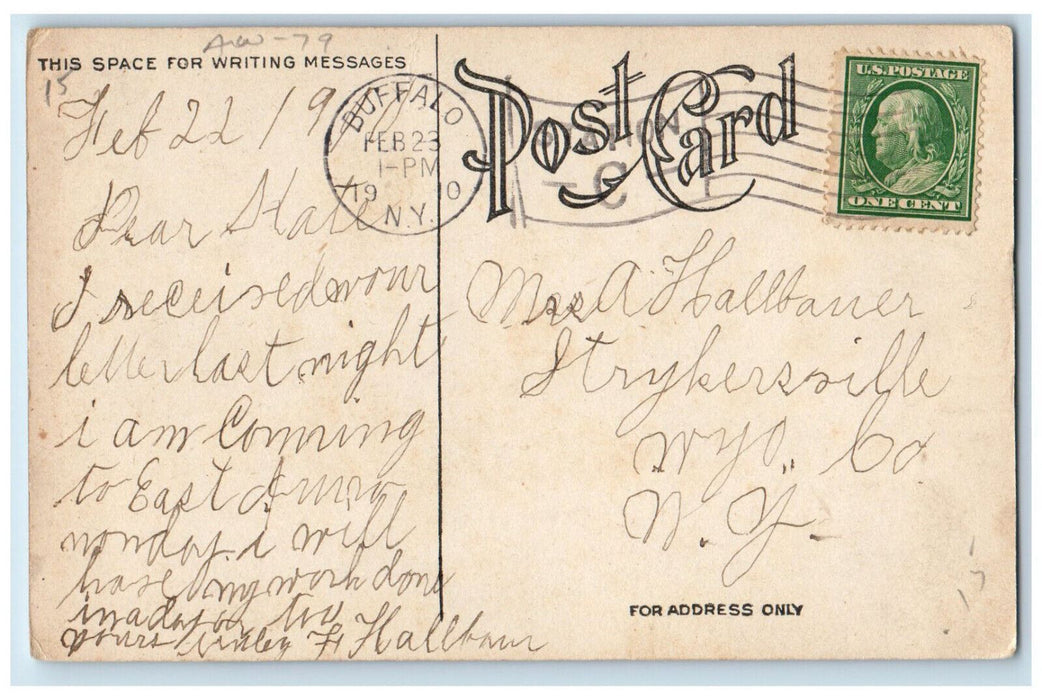 AW-79
THIS SPACE FOR WRITING MESSAGES
15
Feb 22 19
Dear Kate
I received your
letter last night
i am Comming
to East
monday i will
have my work done
in a day or two
yours F Hallbaur
BUFFALO
FEB 23
1-PM
19 10
N.Y.
C
Post Card
U.S. POSTAGE
ONE CENT
Mrs A Hallbauer
Strykersville
Wyo. Co
N. Y.
17
FOR ADDRESS ONLY